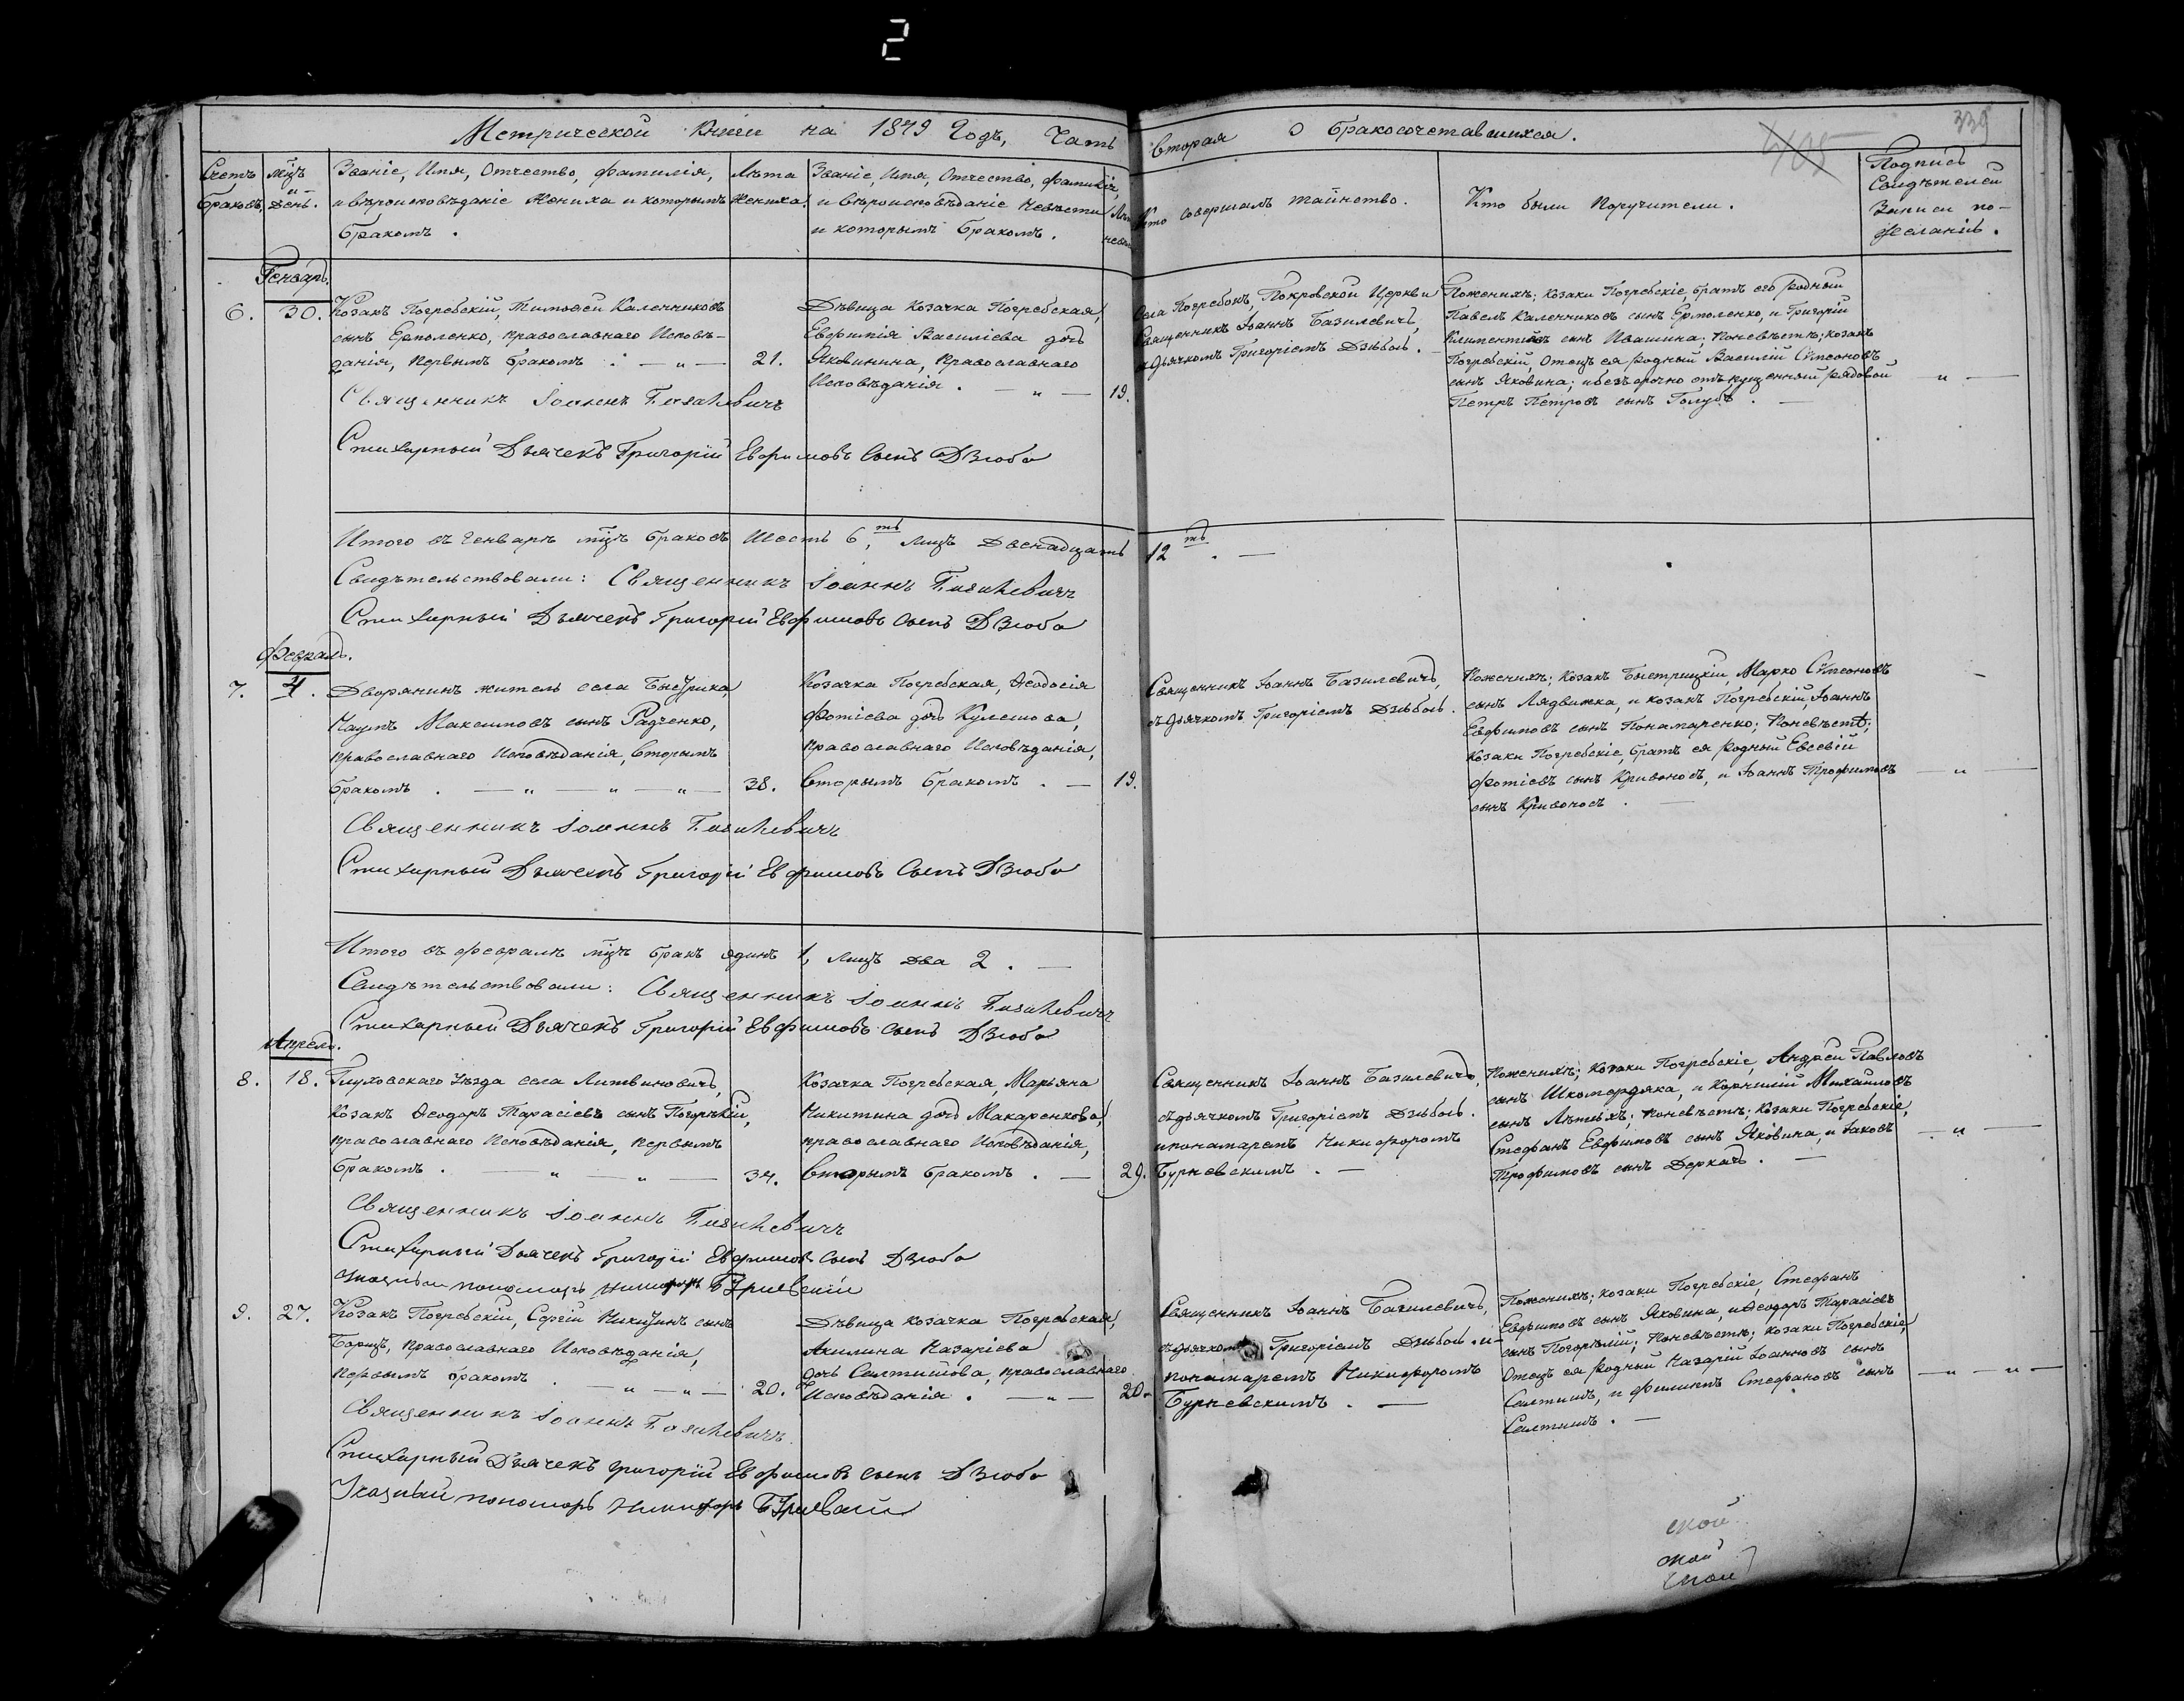 2
339
405
Метрической Книги на 1879 Годъ, Часть вторая о бракосочетавшихся.
Счетъ Браковъ.
Мѣсяцъ и День.
Званіе, Имя, Отчество, фамилія,
и вѣроисповѣданіе Жениха и которымъ
бракомъ.
Лѣта
Жениха.
Званіе, Имя, Отчество, фамилія,
и вѣроисповѣданіе Невѣсты
и которымъ бракомъ.
Кто совершалъ таинство.
Кто были Поручители.
Подпись
Свидѣтелей
Записи по-
желанію.
Генварь.
6. 30.
Козакъ Погребскій, Тимоѳей Каленниковъ
сынъ Ермоленко, православнаго Исповѣ-
данія, Первымъ бракомъ. — „ — 21.
Дѣвица козачка Погребская,
Евфимія Василіева дочь
Яковинина, православнаго
Исповѣданія. — „ — 19.
Села Погребокъ, Покровской Церкви
Священникъ Іоаннъ Базилевичъ,
съ дьячкомъ Григоріемъ Дзюбою.
Поженихѣ; козаки Погребскіе, братъ его родный
Павелъ Каленниковъ сынъ Ермоленко, и Григорій
Климентіевъ сынъ Ивашина; Поневѣстѣ; козакъ
Погребскій, Отецъ ея родный Василій Симеоновъ
сынъ Яковина; и безсрочно отпущенный рядовой
Петръ Петровъ сынъ Голубъ. —
Священникъ Іоаннъ Базилевичъ
Стихарный Дьячекъ Григорій Евфимовъ Сынъ Дзюба
Итого въ Генварѣ мцѣ браковъ Шесть 6, ть лицъ Двенадцать 12 ть. —
Свидѣтельствовали: Священникъ Іоаннъ Базилевичъ
Стихарный Дьячекъ Григорій Евфимовъ Сынъ Дзюба
Февраль.
7. 4.
Дворянинъ житель села
Наумъ Максимовъ сынъ Радченко,
православнаго Исповѣданія, Вторымъ
бракомъ. — „ — „ — „ — 38.
Козачка Погребская, Ѳеодосія
Фотіева дочь Кулешова,
православнаго Исповѣданія,
Вторымъ бракомъ. — 19.
Священникъ Іоаннъ Базилевичъ,
съ дьячкомъ Григоріемъ Дзюбою.
Поженихѣ; козакъ Быстрицкій, Марко Симеоновъ
сынъ Лядвижка, и козакъ Погребскій Іоаннъ
Евфимовъ сынъ Понамаренко; Поневѣстѣ;
козаки Погребскіе, братъ ея родный Евсевій
Фотіевъ сынъ Кривоносъ, и Іоаннъ Трофимовъ
сынъ Кривоносъ. —
Священникъ Іоаннъ Базилевичъ
Стихарный Дьячекъ Григорій Евфимовъ Сынъ Дзюба
Итого въ февралѣ мцѣ бракъ одинъ 1, лицъ два 2. —
Свидѣтельствовали: Священникъ Іоаннъ Базилевичъ
Стихарный Дьячекъ Григорій Евфимовъ Сынъ Дзюба
Апрель.
8. 18.
Глуховскаго уѣзда села Литвиновичъ,
козакъ Ѳеодоръ Тарасіевъ сынъ Погорѣлій,
православнаго Исповѣданія, первымъ
бракомъ. — „ — „ — 34.
Козачка Погребская, Марьяна
Никитина дочь Макаренкова,
православнаго Исповѣданія,
Вторымъ бракомъ. — 29.
Священникъ Іоаннъ Базилевичъ,
съ дьячкомъ Григоріемъ Дзюбою.
и понамаремъ Никифоромъ
Бурневскимъ. —
Поженихѣ; козаки Погребскіе, Андрей Павловъ
сынъ Шкомордяка, и Корнилій Михаиловъ
сынъ; Поневѣстѣ; козаки Погребскіе,
Стефанъ Евфимовъ сынъ Яковина, и Іаковъ
Трофимовъ сынъ Деркачъ. —
Священникъ Іоаннъ Базилевичъ
Стихарный Дьячекъ Григорій Евфимовъ Сынъ Дзюба
Указный пономарь Никифоръ Бурневскій
9. 27.
Козакъ Погребскій, Сергій Никитинъ сынъ
Борищъ, православнаго Исповѣданія,
Первымъ бракомъ. — „ — „ — 20.
Дѣвица козачка Погребская,
Акилина Назаріева
дочь Салтишова, православнаго
Исповѣданія. — „ — 20.
Священникъ Іоаннъ Базилевичъ,
съ дьячкомъ Григоріемъ Дзюбою. и
понамаремъ Никифоромъ
Бурневскимъ. —
Поженихѣ; козаки Погребскіе, Стефанъ
Евфимовъ сынъ Яковина, и Ѳеодоръ Тарасіевъ
сынъ Погорѣлій; Поневѣстѣ; козаки Погребскіе,
Отецъ ея родный Назарій Іоанновъ сынъ
Салтишъ, и Филипъ Стефановъ сынъ
Салтишъ. —
Священникъ Іоаннъ Базилевичъ
Стихарный Дьячекъ Григорій Евфимовъ Сынъ Дзюба
Указный пономарь Никифоръ Бурневскій